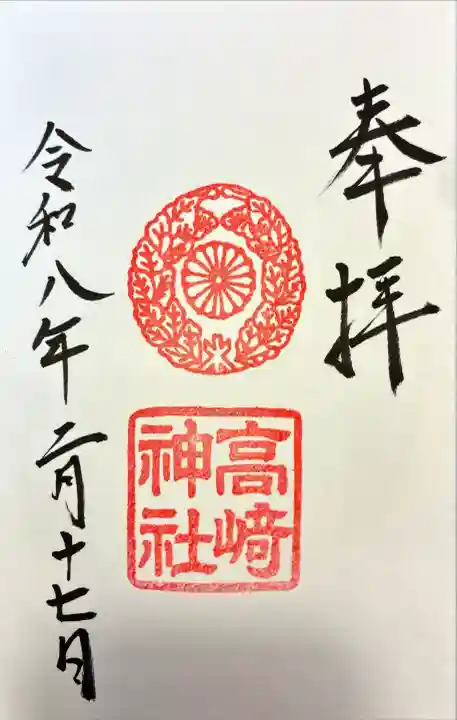 奉拝
高﨑
神社
令和八年二月十七日